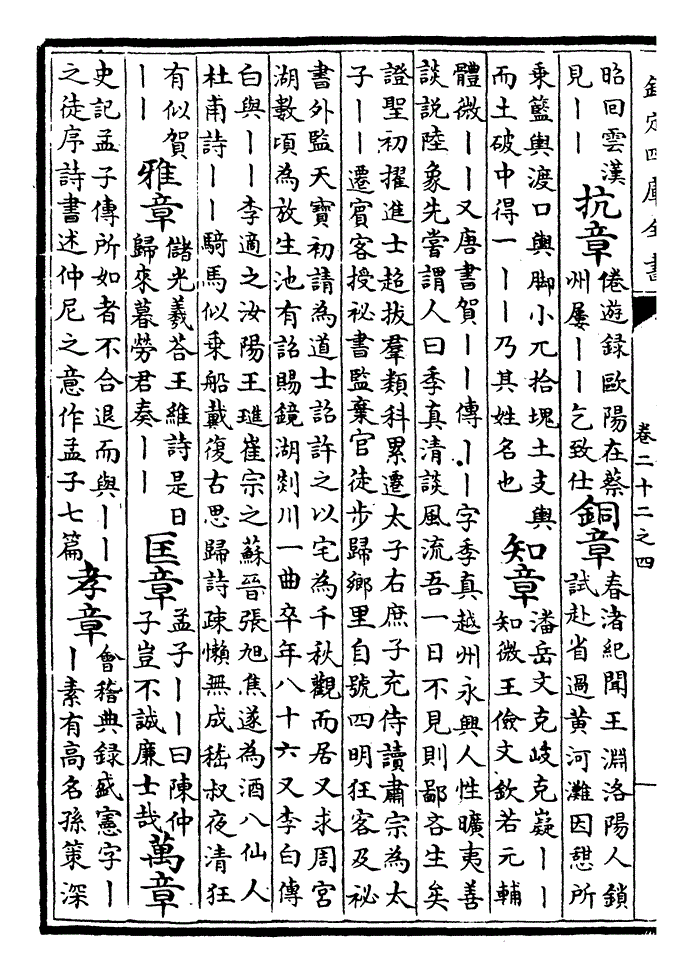 欽定四庫全書
卷二十二之四
昭回雲漢
見丨丨
抗章
倦遊録歐陽在蔡
州屢丨丨乞致仕
銅章
春渚紀聞王淵洛陽人鎖
試赴省過黄河灘因憇所
乘籃輿渡口輿脚小兀拾塊土支輿
而土破中得一丨丨乃其姓名也
知章
潘岳文克岐克嶷丨丨
知微王儉文欽若元輔
體微丨丨又唐書賀丨丨傳丨丨字季真越州永興人性曠夷善
談説陸象先嘗謂人曰季真清談風流吾一日不見則鄙吝生矣
證聖初擢進士超拔羣類科累遷太子右庶子充侍讀肅宗為太
子丨丨遷賓客授祕書監棄官徒步歸鄉里自號四明狂客及祕
書外監天寶初請為道士詔許之以宅為千秋觀而居又求周宮
湖數頃為放生池有詔賜鏡湖剡川一曲卒年八十六又李白傳
白與丨丨李適之汝陽王璡崔宗之蘇晉張旭焦遂為酒八仙人
杜甫詩丨丨騎馬似乘船戴復古思歸詩疎懶無成嵇叔夜清狂
有似賀
丨丨
雅章
儲光羲答王維詩是日
歸來暮勞君奏丨丨
匡章
孟子丨丨曰陳仲
子豈不誠廉士哉
萬章
史記孟子傳所如者不合退而與丨丨
之徒序詩書述仲尼之意作孟子七篇
孝章
會稽典録盛憲字丨
丨素有高名孫策深